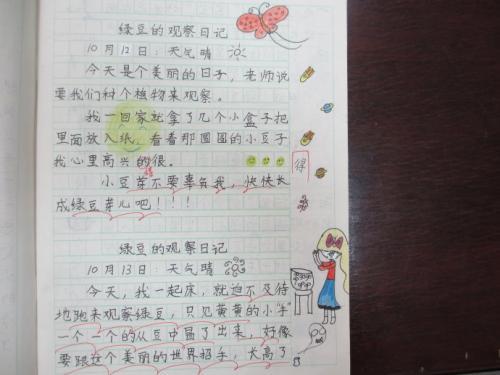 绿豆的观察日记
10月12日：天气晴
今天是个美丽的日子，老师说
要我们种个植物来观察。
我一回家就拿了几个小盒子把
里面放入纸，看着那圆圆的小豆子
我心里高兴的很。
得
得
小豆芽不要辜负我，快快长
成绿豆芽儿吧！！！
绿豆的观察日记
10月13日：天气晴
今天，我一起床，就迫不及待
地跑来观察绿豆，只见黄黄的小“手”
一个一个的从豆中冒了出来，好像
要跟这个美丽的世界招手，太高了